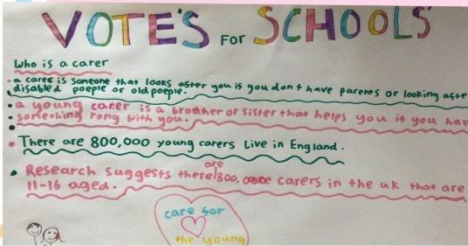 VOTE'S FOR SCHOOLS
Who is a carer
• a carer is someone that looks after you is you don't have parents or looking afte
disabled poeple or old poeple.
• a young carer is a brother or sister that helps you if you hav
• something rong with you.
• There are 800,000 young carers live in England.
• Research suggests there are 800,000 carers in the uk that are
11-16 aged.
care for
the young